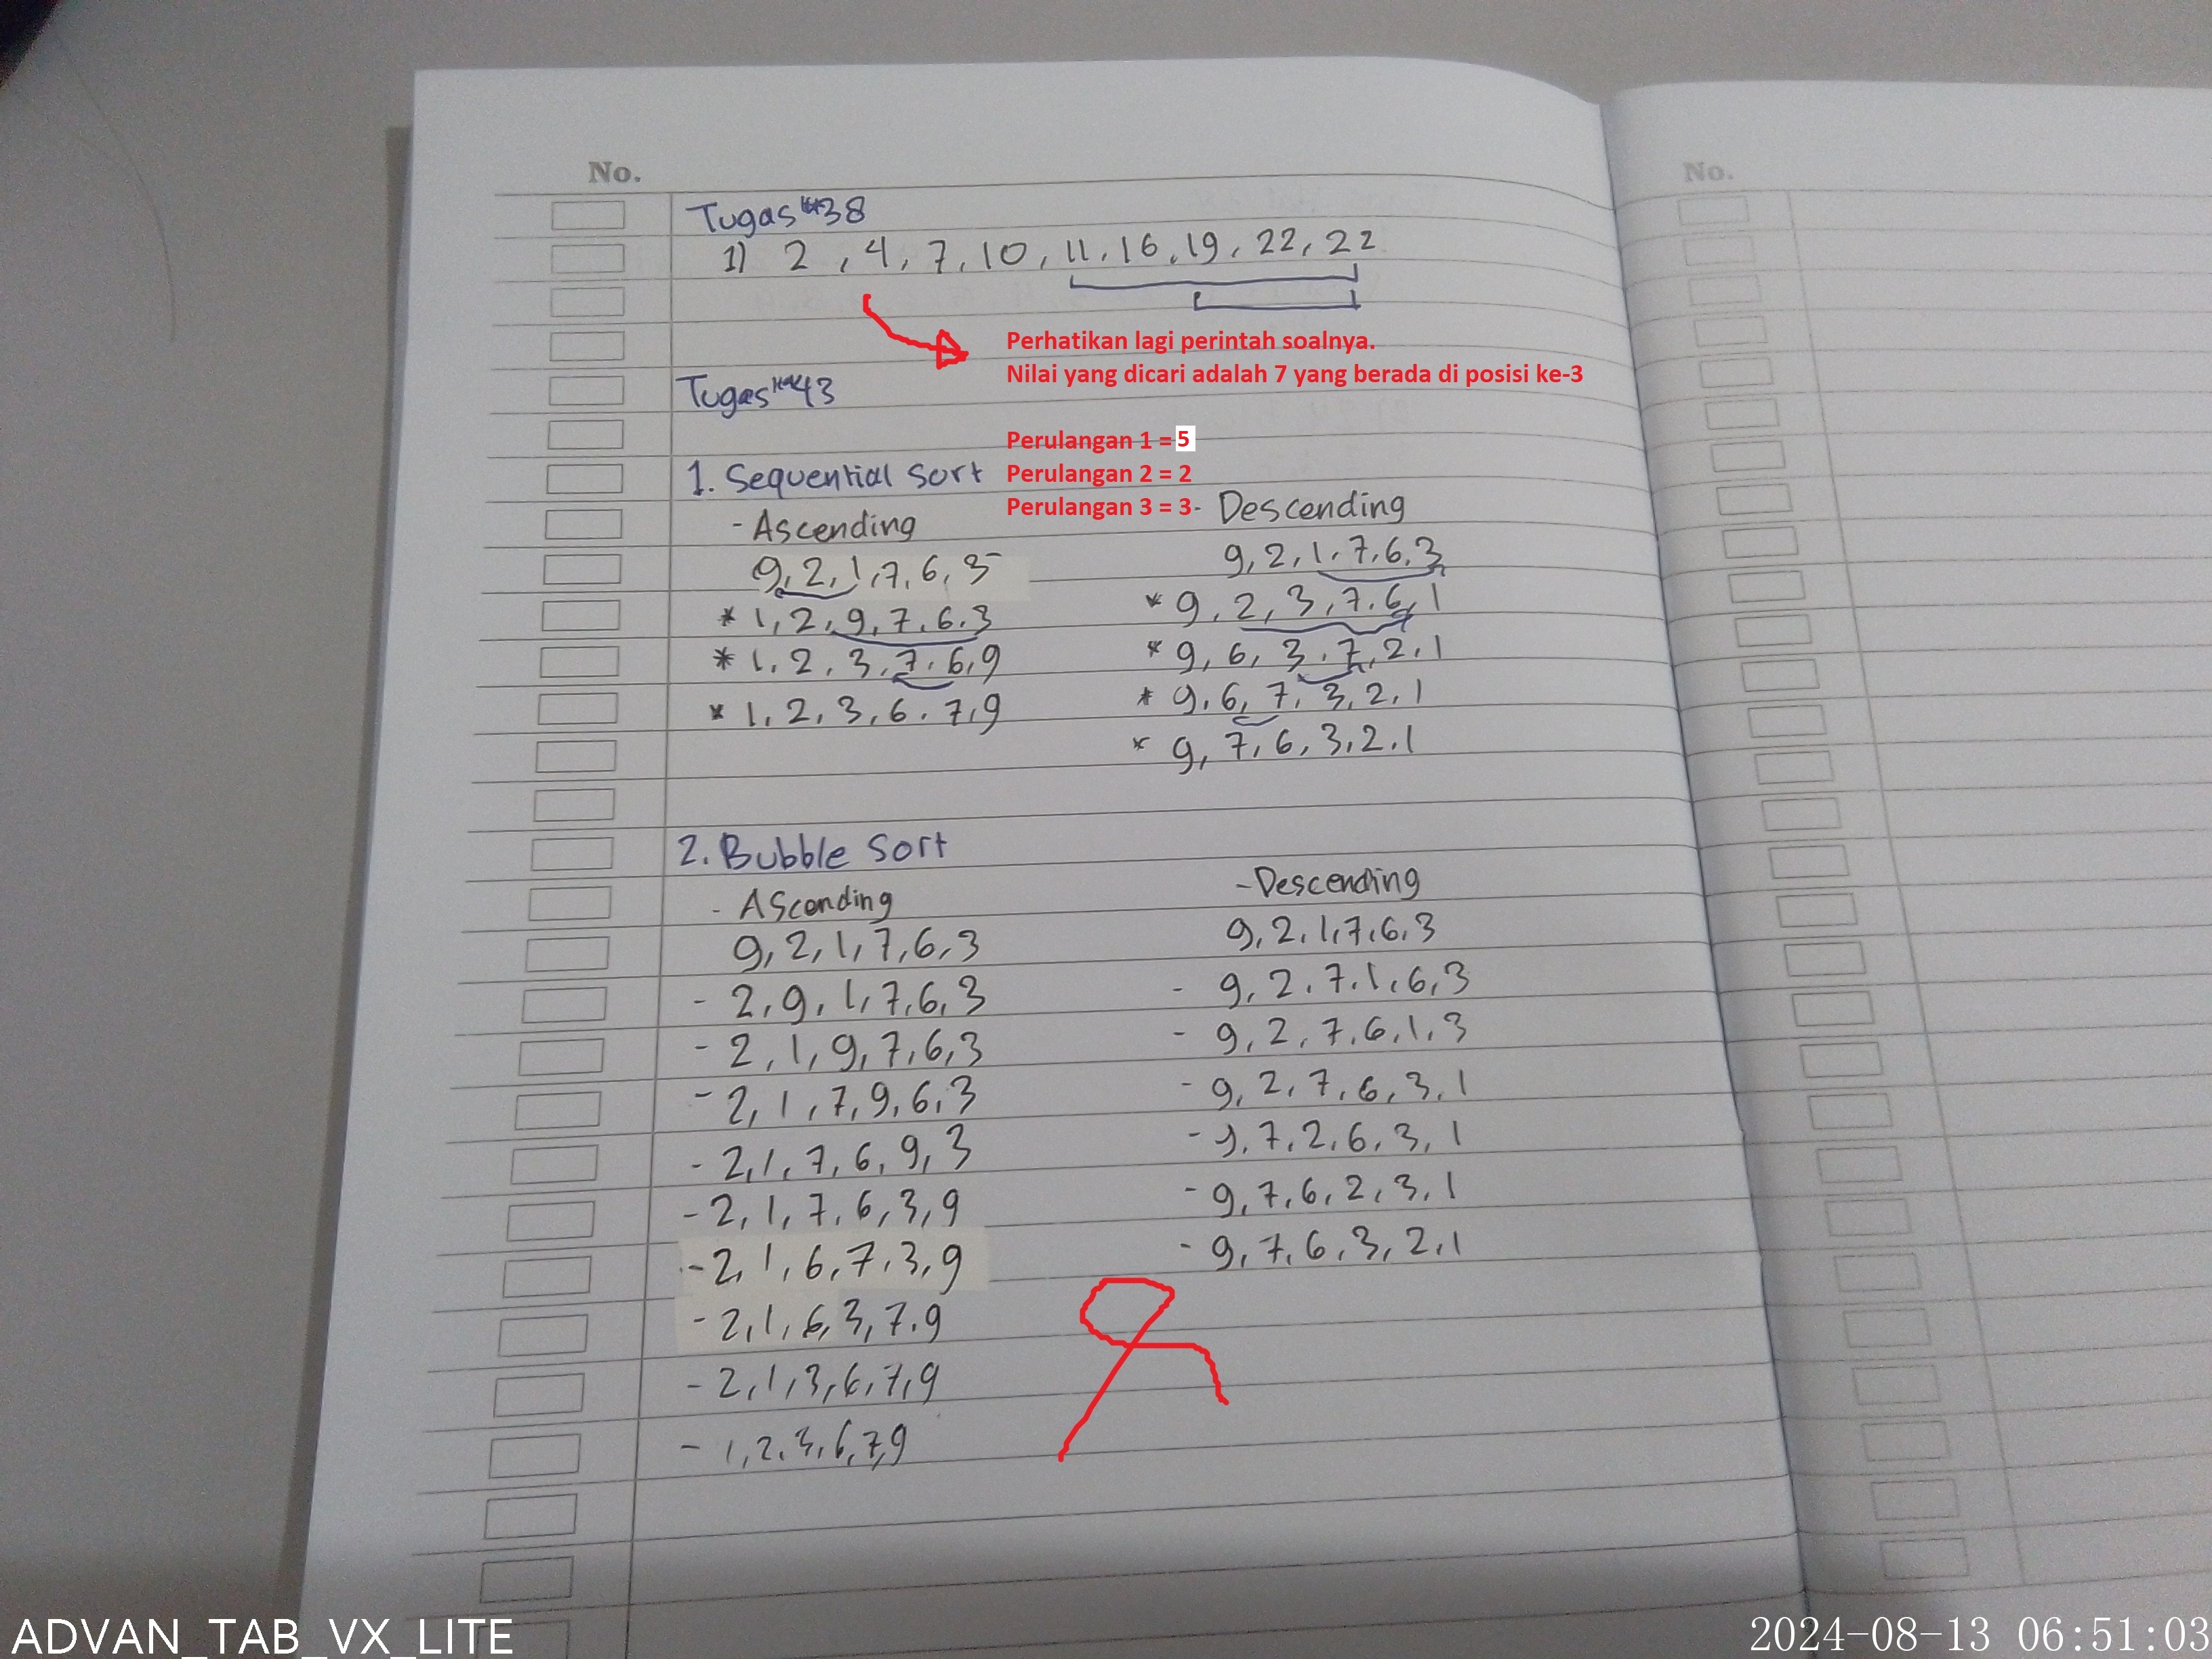 No.
Tugas Hal 38
1) 2, 4, 7, 10, 11, 16, 19, 22, 22
Perhatikan lagi perintah soalnya.
Nilai yang dicari adalah 7 yang berada di posisi ke-3
Tugas Hal 43
Perulangan 1 = 5
Perulangan 2 = 2
Perulangan 3 = 3
1. Sequential Sort
- Ascending
9, 2, 1, 7, 6, 3
* 1, 2, 9, 7, 6, 3
* 1, 2, 3, 7, 6, 9
* 1, 2, 3, 6, 7, 9
- Descending
9, 2, 1, 7, 6, 3
* 9, 2, 3, 7, 6, 1
* 9, 6, 3, 7, 2, 1
* 9, 6, 7, 3, 2, 1
* 9, 7, 6, 3, 2, 1
2. Bubble Sort
- Ascending
9, 2, 1, 7, 6, 3
- 2, 9, 1, 7, 6, 3
- 2, 1, 9, 7, 6, 3
- 2, 1, 7, 9, 6, 3
- 2, 1, 7, 6, 9, 3
- 2, 1, 7, 6, 3, 9
- 2, 1, 6, 7, 3, 9
- 2, 1, 6, 3, 7, 9
- 2, 1, 3, 6, 7, 9
- 1, 2, 3, 6, 7, 9
- Descending
9, 2, 1, 7, 6, 3
- 9, 2, 7, 1, 6, 3
- 9, 2, 7, 6, 1, 3
- 9, 2, 7, 6, 3, 1
- 9, 7, 2, 6, 3, 1
- 9, 7, 6, 2, 3, 1
- 9, 7, 6, 3, 2, 1
No.
ADVAN_TAB_VX_LITE
2024-08-13 06:51:03